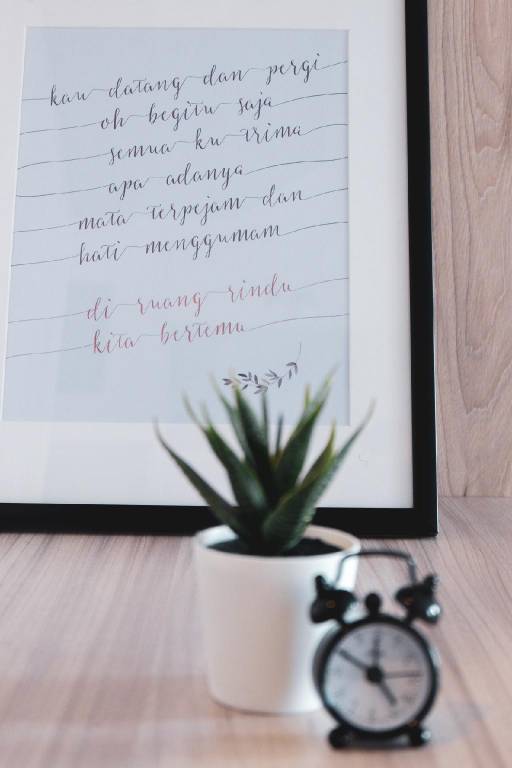 kau datang dan pergi
oh begitu saja
semua ku trima
apa adanya
mata terpejam dan
hati menggumam
di ruang rindu
kita bertemu